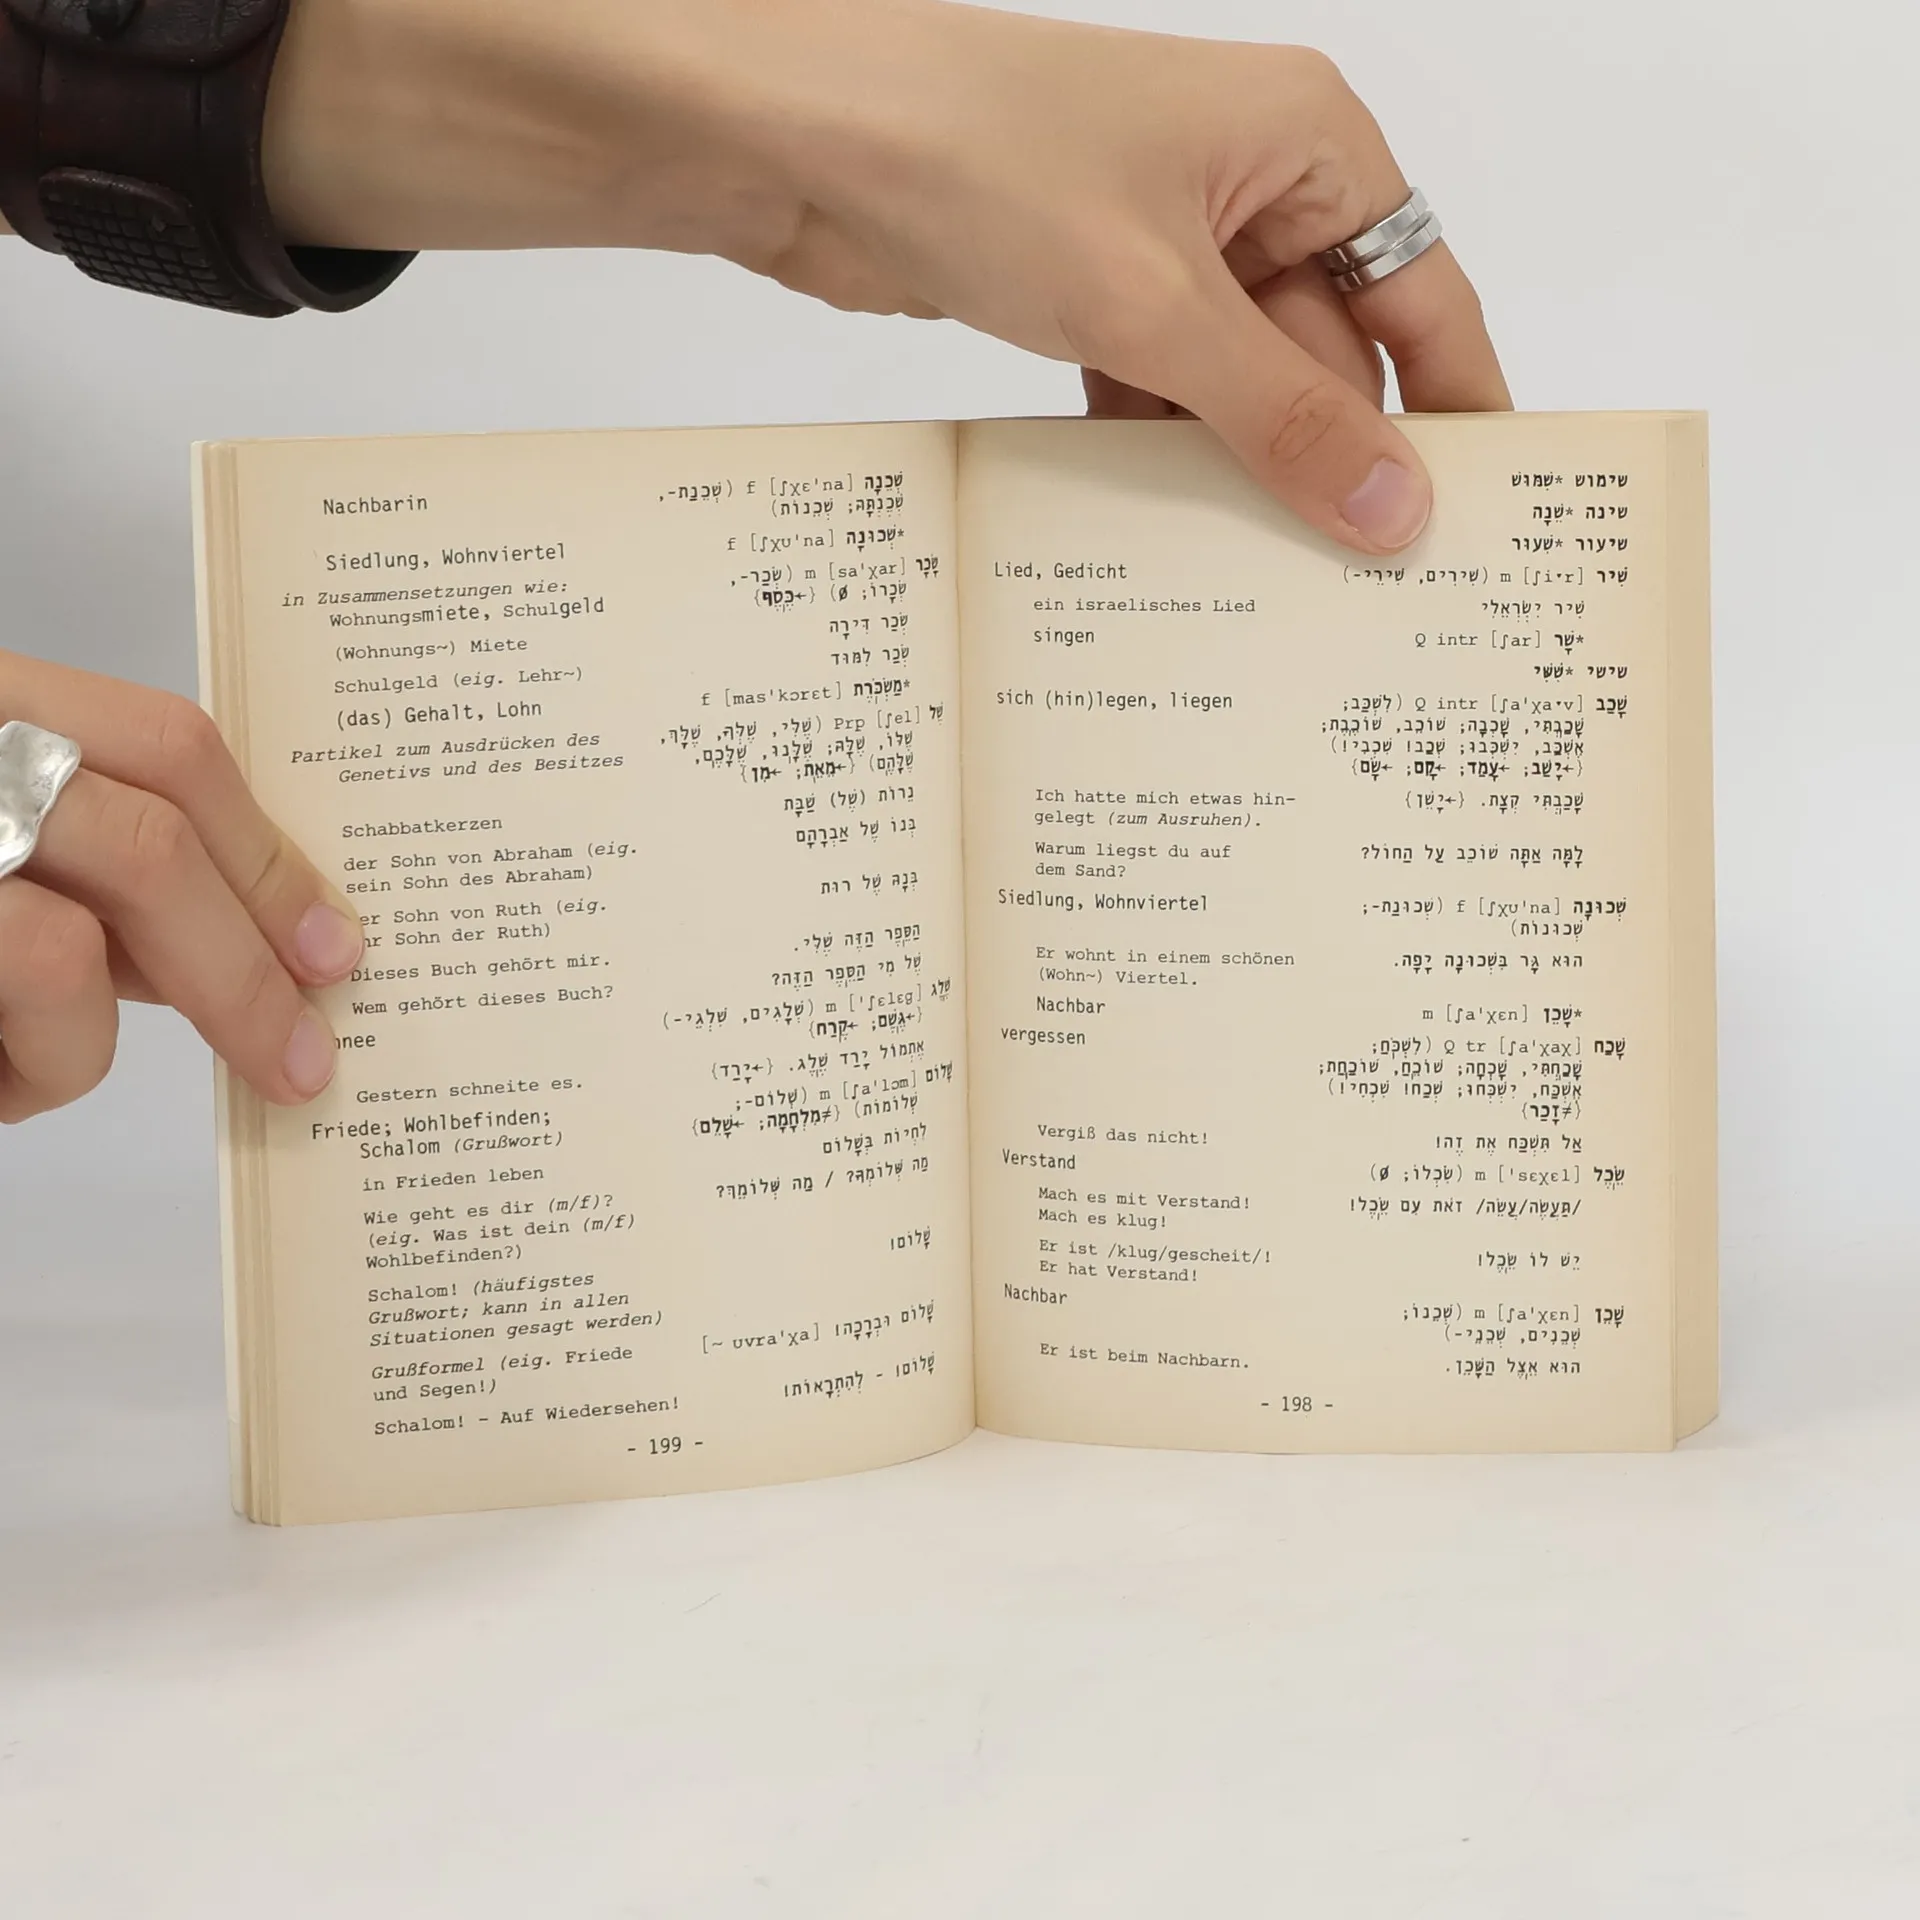 שימוש *שִׁמּוּשׁ
שינה *שֵׁנָה
שיעור *שִׁעוּר
שִׁיר [ʃiˑr] m (שִׁירִים, שִׁירֵי-) Lied, Gedicht
שִׁיר יִשְׂרְאֵלִי ein israelisches Lied
*שָׁר [ʃar] Q intr singen
שישי *שִׁשִּׁי
שָׁכַב [ʃa'χaˑv] Q intr (לִשְׁכַּב; sich (hin)legen, liegen
שָׁכַבְתִּי, שָׁכְבָה; שׁוֹכֵב, שׁוֹכֶבֶת;
אֶשְׁכַּב, יִשְׁכְּבוּ; שְׁכַב! שִׁכְבִי!)
{←יָשַׁב; ←עָמַד; ←קָם; ←שָׂם}
שָׁכַבְתִּי קְצָת. {←יָשֵׁן} Ich hatte mich etwas hin-
gelegt (zum Ausruhen).
לָמָּה אַתָּה שׁוֹכֵב עַל הַחוֹל? Warum liegst du auf
dem Sand?
שְׁכוּנָה [ʃχʊ'na] f (שְׁכוּנַת-; Siedlung, Wohnviertel
שְׁכוּנוֹת)
הוּא גָּר בִּשְׁכוּנָה יָפָה. Er wohnt in einem schönen
(Wohn~) Viertel.
*שָׁכֵן [ʃa'χɛn] m Nachbar
שָׁכַח [ʃa'χaχ] Q tr (לִשְׁכֹּחַ; vergessen
שָׁכַחְתִּי, שָׁכְחָה; שׁוֹכֵחַ, שׁוֹכַחַת;
אֶשְׁכַּח, יִשְׁכְּחוּ; שְׁכַח! שִׁכְחִי!)
{≠זָכַר}
אַל תִּשְׁכַּח אֶת זֶה! Vergiß das nicht!
שֵׂכֶל ['sɛχɛl] m (שִׂכְלוֹ; Ø) Verstand
/תַּעֲשֶׂה/עֲשֵׂה/ זֹאת עִם שֵׂכֶל! Mach es mit Verstand!
Mach es klug!
יֵשׁ לוֹ שֵׂכֶל! Er ist /klug/gescheit/!
Er hat Verstand!
שָׁכֵן [ʃa'χɛn] m (שְׁכֵנוֹ; Nachbar
שְׁכֵנִים, שְׁכֵנֵי-)
הוּא אֵצֶל הַשָּׁכֵן. Er ist beim Nachbarn.
- 198 -
שְׁכֵנָה [ʃχɛ'na] f (שְׁכֵנַת-, Nachbarin
שְׁכֶנְתָּהּ; שְׁכֵנוֹת)
*שְׁכוּנָה [ʃχʊ'na] f Siedlung, Wohnviertel
שָׂכָר [sa'χar] m (שְׂכַר-, in Zusammensetzungen wie:
שְׂכָרוֹ; Ø) {←כֶּסֶף} Wohnungsmiete, Schulgeld
שְׂכַר דִּירָה (Wohnungs~) Miete
שְׂכַר לִמּוּד Schulgeld (eig. Lehr~)
*מַשְׂכֹּרֶת [mas'kɔrɛt] f (das) Gehalt, Lohn
שֶׁל [ʃel] Prp (שֶׁלִּי, שֶׁלְּךָ, שֶׁלָּךְ, Partikel zum Ausdrücken des
שֶׁלּוֹ, שֶׁלָּהּ; שֶׁלָּנוּ, שֶׁלָּכֶם, Genetivs und des Besitzes
שֶׁלָּהֶם) {←מֵאֵת; ←מִן}
נֵרוֹת (שֶׁל) שַׁבָּת Schabbatkerzen
בְּנוֹ שֶׁל אַבְרָהָם der Sohn von Abraham (eig.
sein Sohn des Abraham)
בְּנָהּ שֶׁל רוּת er Sohn von Ruth (eig.
hr Sohn der Ruth)
הַסֵּפֶר הַזֶּה שֶׁלִּי. Dieses Buch gehört mir.
שֶׁל מִי הַסֵּפֶר הַזֶּה? Wem gehört dieses Buch?
שֶׁלֶג ['ʃɛlɛg] m (שְׁלָגִים, שִׁלְגֵי-) nee
{←גֶּשֶׁם; ←קֶרַח}
אֶתְמוֹל יָרַד שֶׁלֶג. {←יָרַד} Gestern schneite es.
שָׁלוֹם [ʃa'lɔm] m (שְׁלוֹם-; Friede; Wohlbefinden;
שְׁלוֹמוֹת) {≠מִלְחָמָה; ←שָׁלֵם} Schalom (Grußwort)
לִחְיוֹת בְּשָׁלוֹם in Frieden leben
מַה שְּׁלוֹמְךָ? / מַה שְּׁלוֹמֵךְ? Wie geht es dir (m/f)?
(eig. Was ist dein (m/f)
Wohlbefinden?)
שָׁלוֹם! Schalom! (häufigstes
Grußwort; kann in allen
Situationen gesagt werden)
שָׁלוֹם וּבְרָכָה! [~ ʊvra'χa] Grußformel (eig. Friede
und Segen!)
שָׁלוֹם! - לְהִתְרָאוֹת! Schalom! - Auf Wiedersehen!
- 199 -